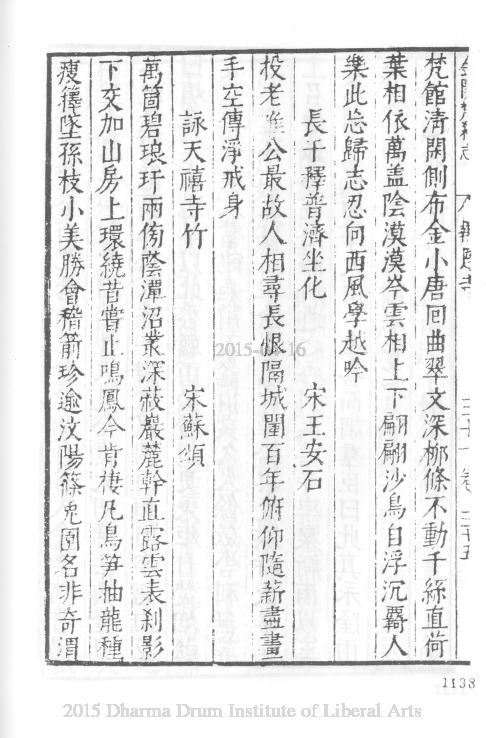 金陵梵剎志 八 報恩寺 三十一卷 三十五
梵館清閑側布金小唐囘曲翠文深桞條不動千絲直荷
葉相依萬盖陰漠漠岑雲相上下翩翩沙鳥自浮沉覊人
樂此忘歸志忍向西風學越吟
長干釋普濟坐化 宋王安石
投老唯公最故人相尋長恨隔城闉百年俯仰隨薪盡畫
手空傳淨戒身
詠天禧寺竹 宋蘇頌
萬箇碧琅玕兩傍蔭潭沼叢深蔽嚴麓幹直露雲表刹影
下交加山房上環繞昔嘗止鳴鳳今肯棲凡鳥笋抽龍種
瘦籜墜孫枝小美勝會稽箭珍逾汶陽篠兎園名非奇渭
1138
2015-04-16
2015 Dharma Drum Institute of Liberal Arts